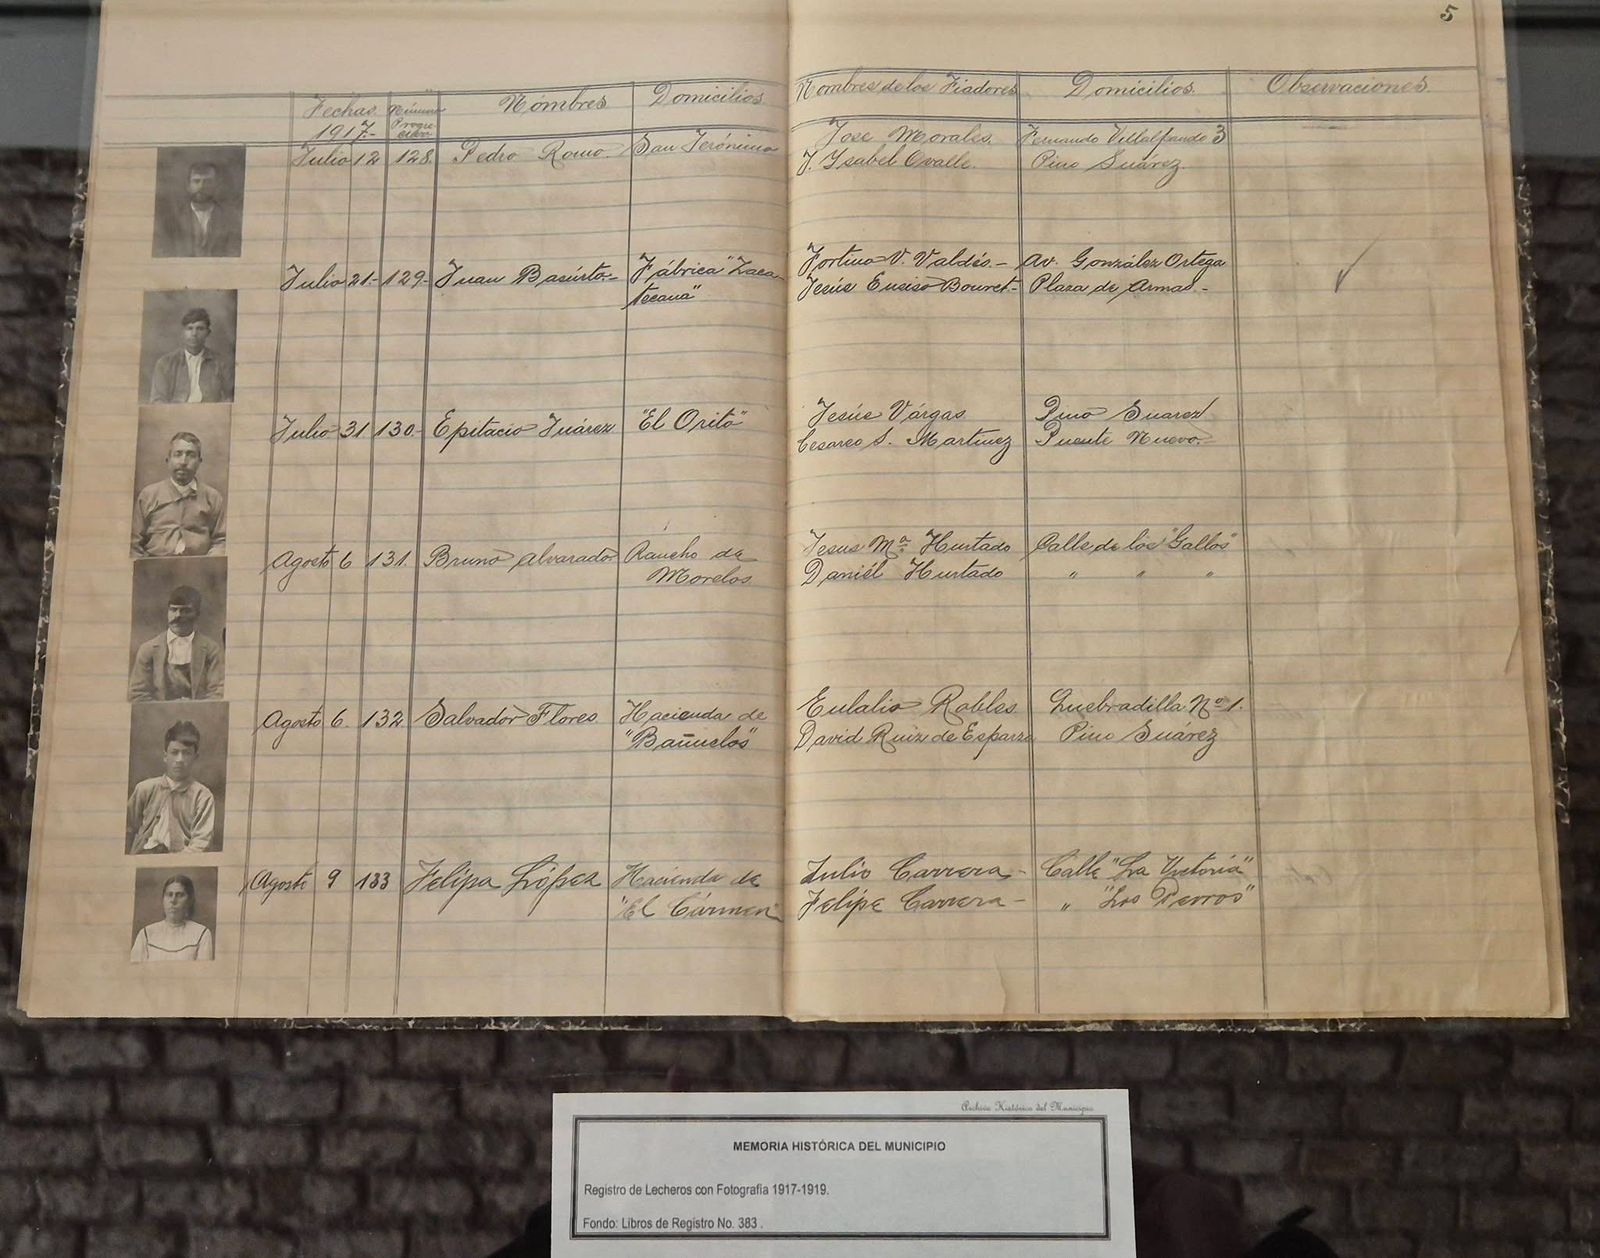 5
Fechas 1917.- Número Progresivo Nómbres Domicilios Nombres de los Fiadores Domicilios. Observaciones.
Julio 12 128. Pedro Romo. San Jerónimo José Morales. Fernando Villalpando 3
J. Ysabel Ovalle. Pino Suárez.
Julio 21- 129- Juan Basúrto- Fábrica "Zaca Fortino V. Valdés.- Av. González Ortega
tecana" Jesús Enciso Bouret.- Plaza de Armas.-
Julio 31 130- Epitacio Juárez "El Orito" Jesús Várgas Pino Suarez
Cesareo S. Martinez Puente Nuevo.
Agosto 6 131. Bruno Alvarado Rancho de Jesus Mª. Hurtado Calle de los "Gallos"
Morelos Daniél Hurtado " " "
Agosto 6. 132 Salvador Flores Hacienda de Eulalio Robles Quebradilla Nº 1.
"Bañuelos" David Ruiz de Esparza Pino Suárez
Agosto 9 133 Felipa López Hacienda de Julio Carrera- Calle "La Victoria"
"El Cármen" Felipe Carrera- " "Los Perros"
Archivo Histórico del Municipio
MEMORIA HISTÓRICA DEL MUNICIPIO
Registro de Lecheros con Fotografía 1917-1919.
Fondo: Libros de Registro No. 383 .